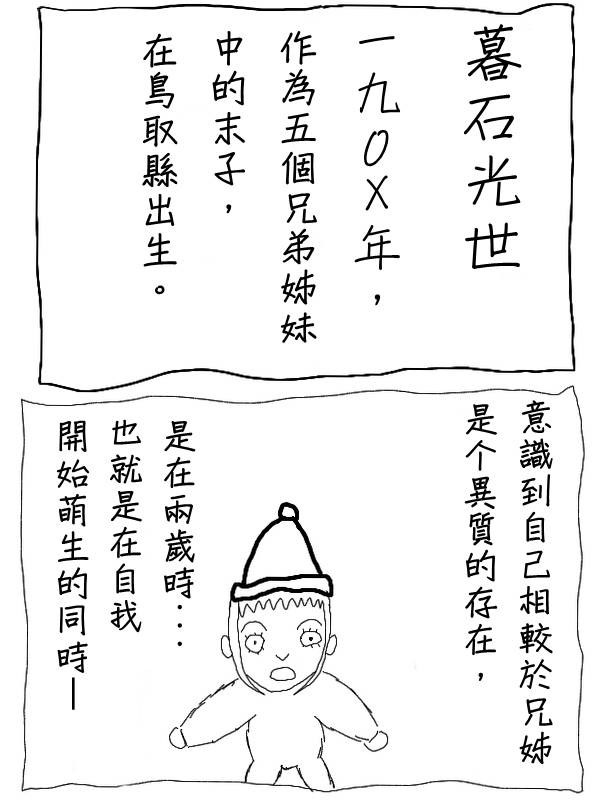 暮石光世
一九〇X年，
作為五個兄弟姊妹
中的末子，
在鳥取縣出生。
意識到自己相較於兄姊
是个異質的存在，
是在兩歲時...
也就是在自我
開始萌生的同時—